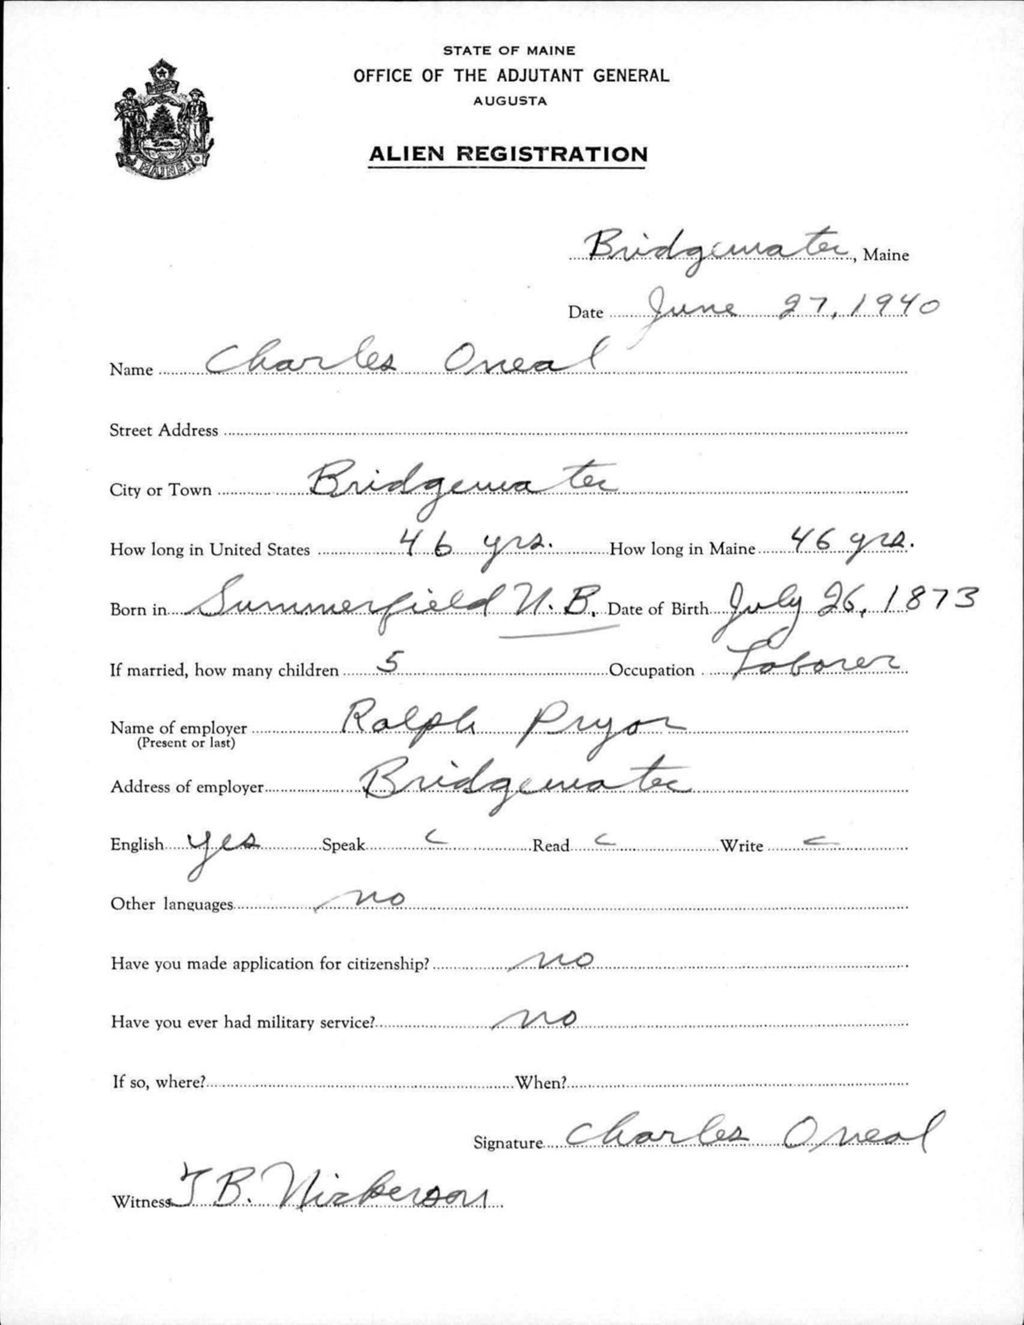 STATE OF MAINE
OFFICE OF THE ADJUTANT GENERAL
AUGUSTA
ALIEN REGISTRATION
MAINE
Bridgewater, Maine
Date June 27, 1940
Name Charles Oneal
Street Address
City or Town Bridgewater
How long in United States 46 yrs. How long in Maine 46 yrs.
Born in Summerfield N.B. Date of Birth July 26, 1873
If married, how many children 5 Occupation Laborer
Name of employer Ralph Pryor
(Present or last)
Address of employer Bridgewater
English yes Speak Read Write
Other languages no
Have you made application for citizenship? no
Have you ever had military service? no
If so, where? When?
Signature Charles Oneal
Witness T B. Nickerson